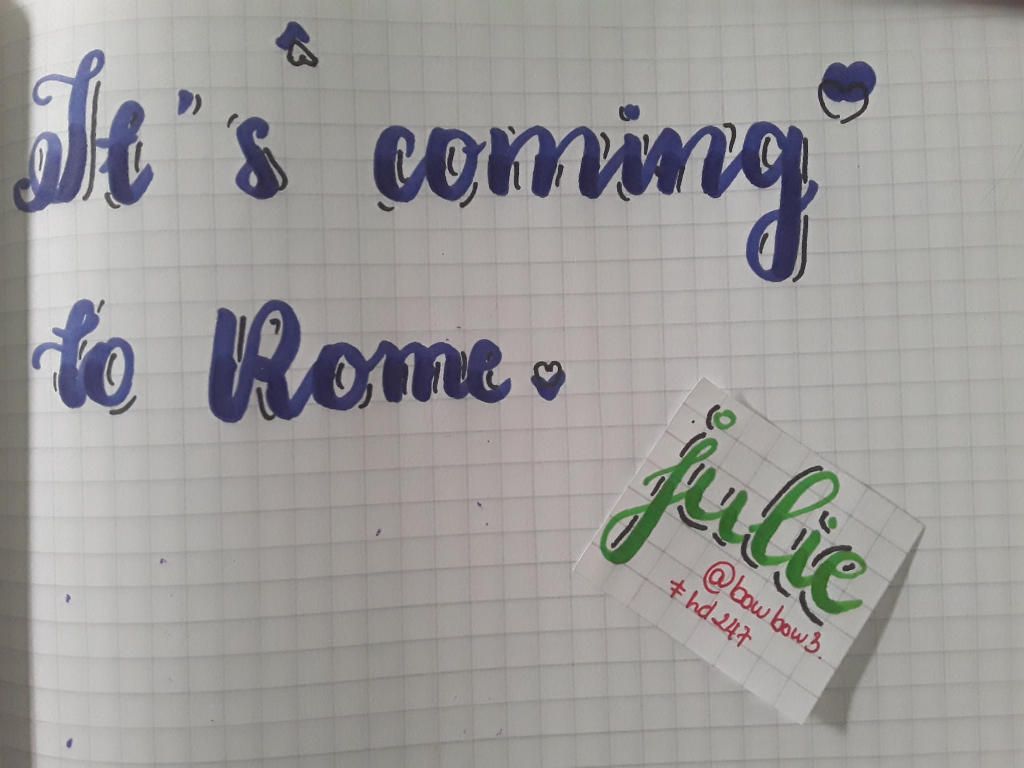 It's coming
to Rome.
julie
@bowbow3.
#hd247